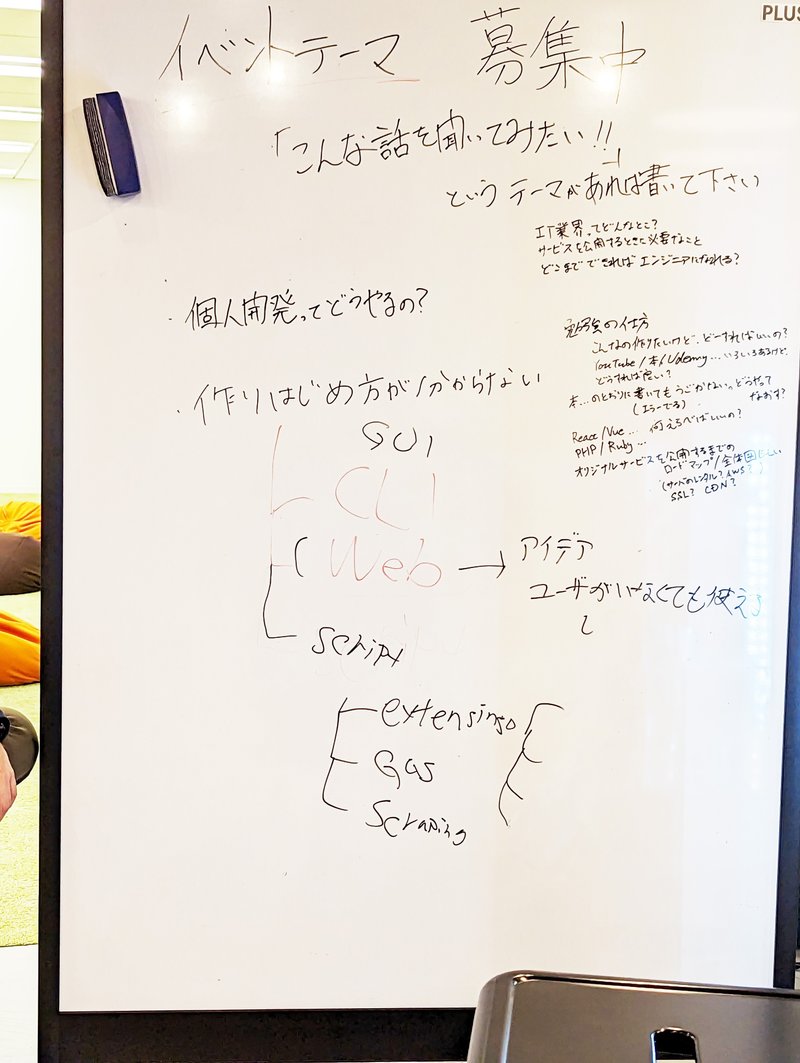 PLUS
イベントテーマ 募集中
「こんな話を聞いてみたい!!」
というテーマがあれば書いて下さい
IT業界ってどんなとこ?
サービスを公開するときに必要なこと
どこまでできればエンジニアになれる?
・個人開発ってどうやるの?
勉強の仕方
こんなの作りたいけど、どーすればいいの?
YouTube/本/Udemy…いろいろあるけど、
どうすれば良い?
本…のとおりに書いてもうごかない。どうやって
(エラーでる) なおす?
React/Vue… 何えらべばいいの?
PHP/Ruby…
オリジナルサービスを公開するまでの
ロードマップ/全体図ほしい
(サーバのレンタル? AWS?)
SSL? CDN?
・作りはじめ方が分からない
GUI
CLI
Web → アイデア
ユーザがいなくても使える
script
extensinso
Gas
Scraping